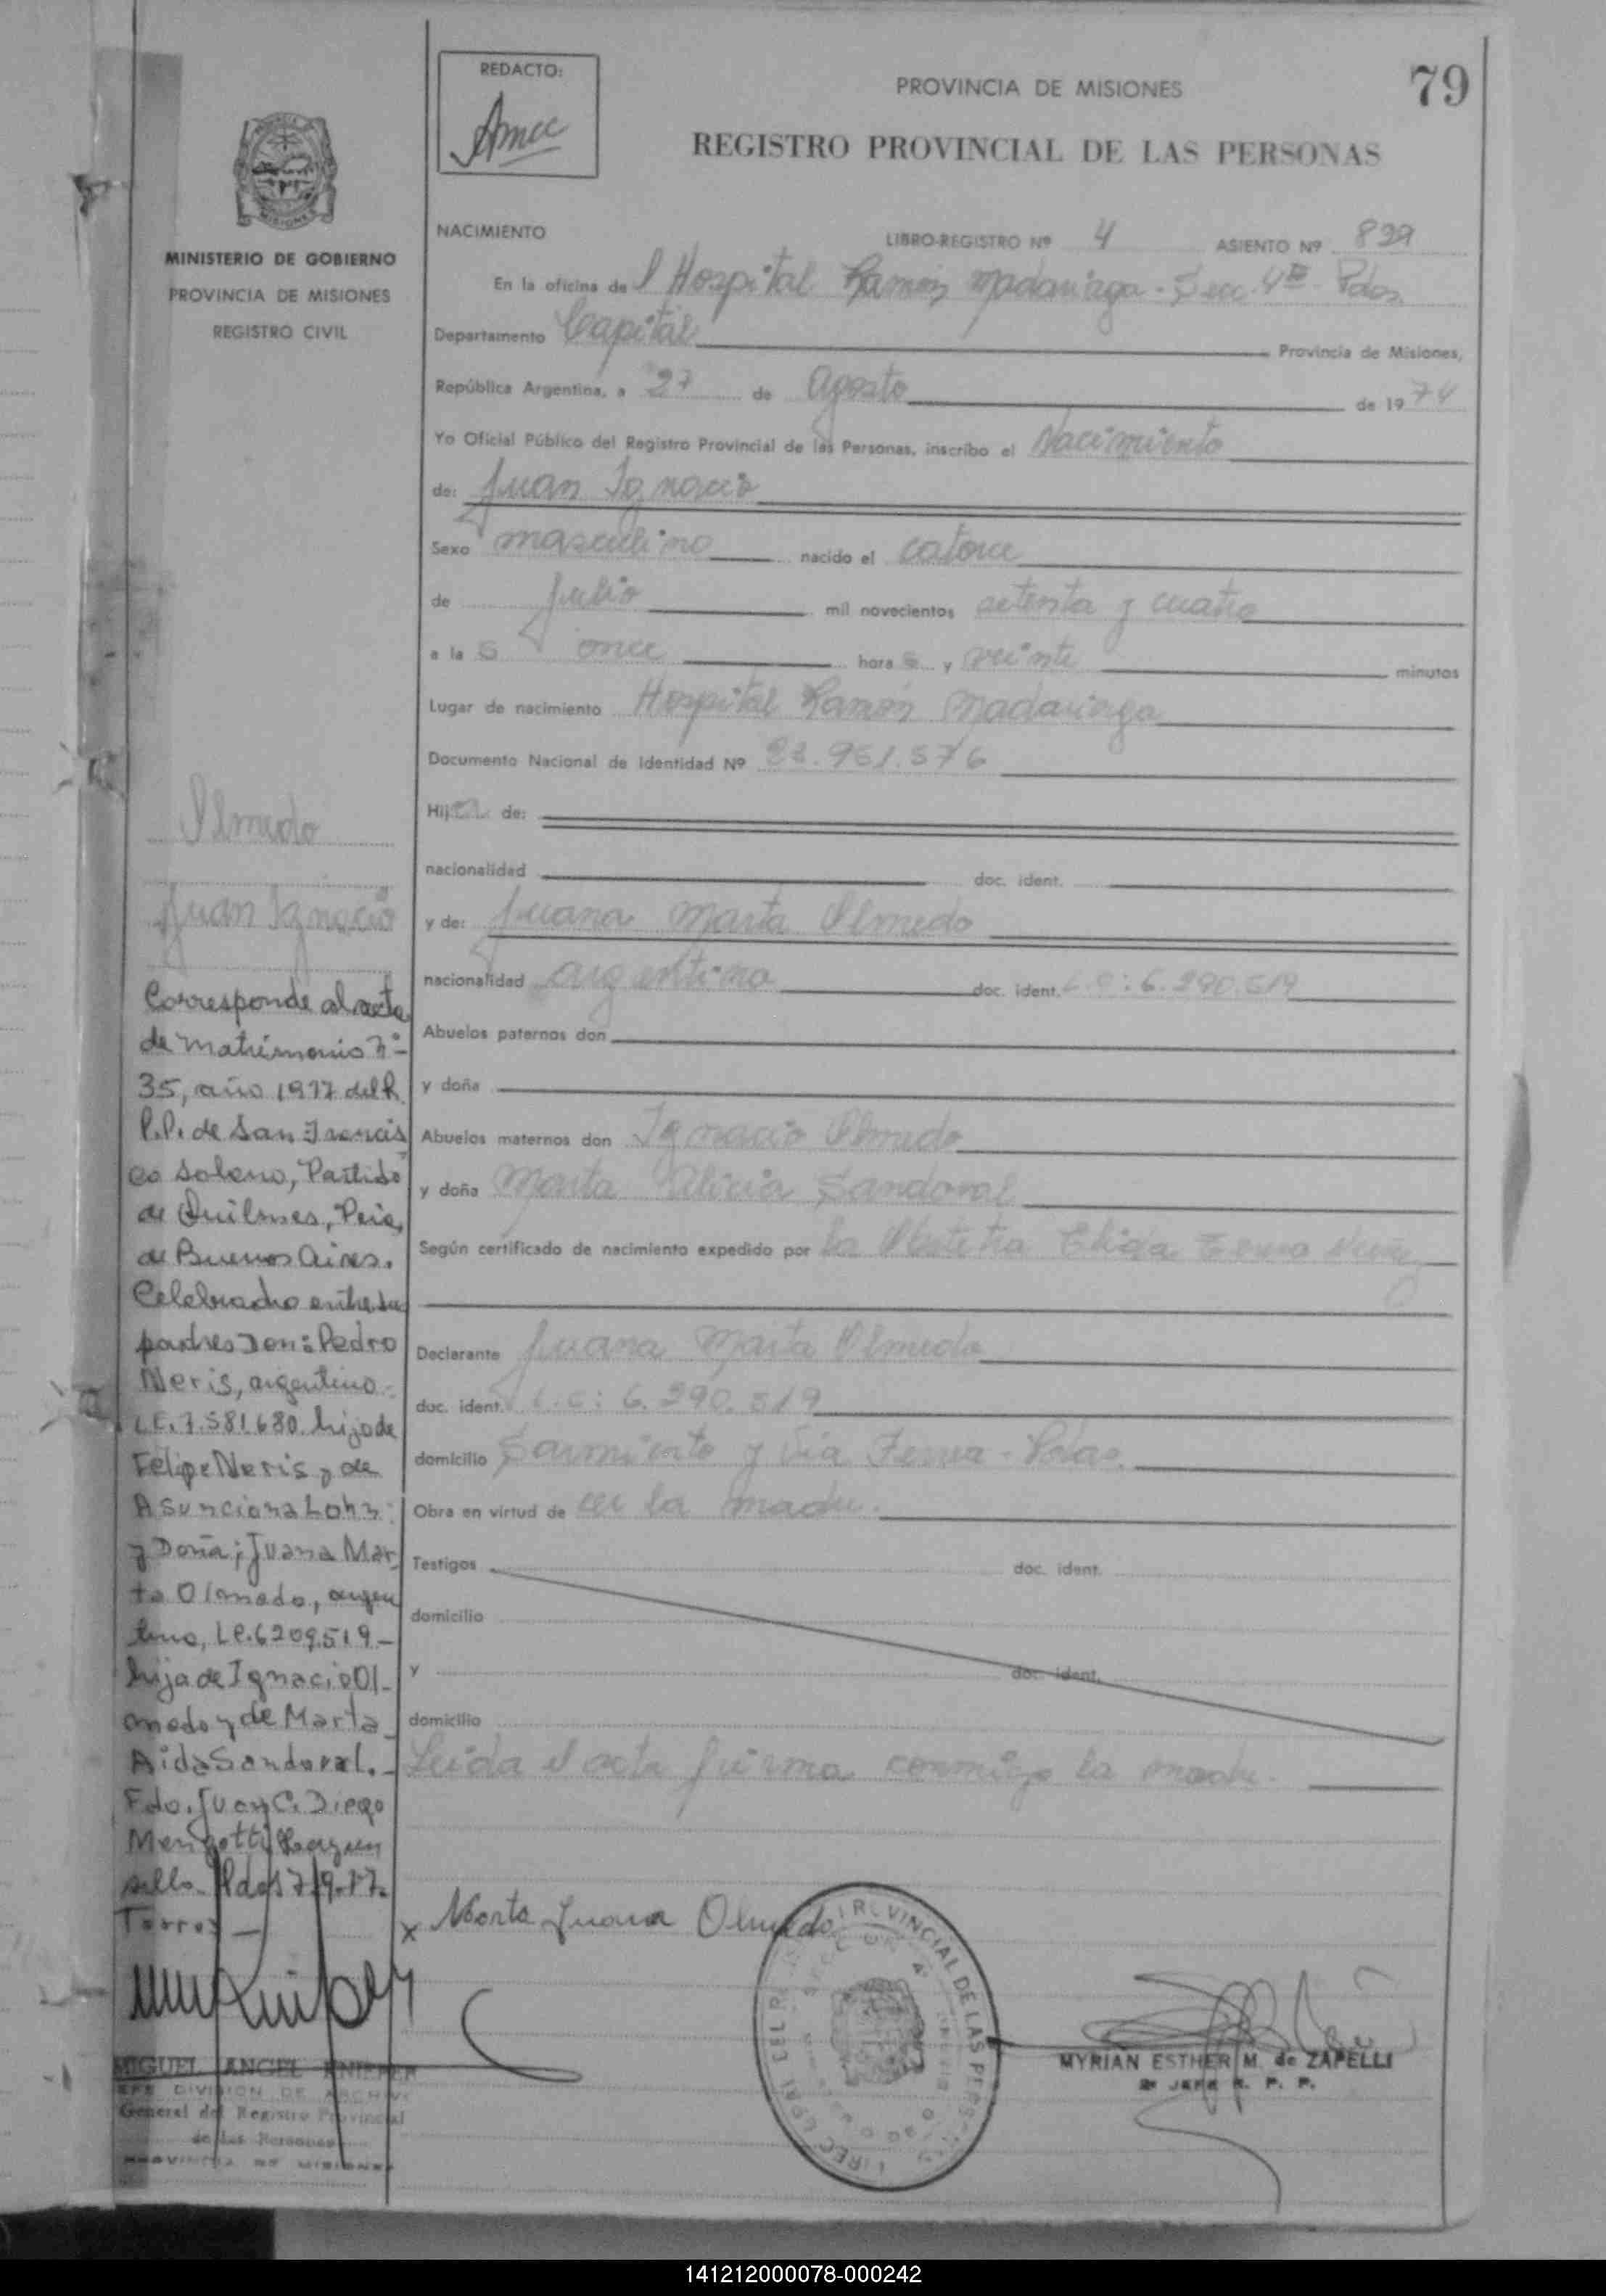 REDACTO:
79
PROVINCIA DE MISIONES
REGISTRO PROVINCIAL DE LAS PERSONAS
MINISTERIO DE GOBIERNO
PROVINCIA DE MISIONES
REGISTRO CIVIL
NACIMIENTO LIBRO-REGISTRO Nº 4 ASIENTO Nº 829
En la oficina del Hospital Ramón Madariaga - Secc. 4ª Pdas
Departamento Capital Provincia de Misiones,
República Argentina, a 27 de Agosto de 1974
Yo Oficial Público del Registro Provincial de las Personas, inscribo el Nacimiento
de: Juan Ignacio
Sexo masculino nacido el catorce
de Julio mil novecientos setenta y cuatro
a las once horas y veinte minutos
Lugar de nacimiento Hospital Ramón Madariaga
Documento Nacional de Identidad Nº 23.951.576
Hijo de:
nacionalidad doc. ident.
y de: Juana Marta Olmedo
nacionalidad argentina doc. ident. L.C: 6.290.519
Abuelos paternos don
y doña
Abuelos maternos don Ignacio Olmedo
y doña Marta Alicia Sandoval
Según certificado de nacimiento expedido por la Obstetra Elida
Declarante Juana Marta Olmedo
doc. ident. L.C: 6.290.519
domicilio Sarmiento y Via Ferrea - Pdas.
Obra en virtud de ser la madre.
Testigos doc. ident.
domicilio
y doc. ident.
domicilio
Leida el acta firma conmigo la madre.
Olmedo
Juan Ignacio
Corresponde al acta
de matrimonio Nº
35, año 1977 del R.
P.P. de San Francis
co Solano, Partido
de Quilmes, Pcia,
de Buenos Aires.
Celebrado entre sus
padres Don: Pedro
Neris, argentino
L.E. 7.581.680. hijo de
Felipe Neris y de
Asunciona Lohn;
y Doña; Juana Mar
ta Olmedo, argen
tina, LC. 6209.519.-
hija de Ignacio Ol-
medo y de Marta
Aida Sandoval.-
Fdo. Juan C. Diego
Mengotti Hay un
sello. Pdas 7/9-77.
Torres
x Marta Juana Olmedo
MIGUEL ANGEL KNIEPER
JEFE DIVISION DE ARCHIVO
General del Registro Provincial
de las Personas
PROVINCIA DE MISIONES
PROVINCIAL DE LAS PERSONAS
MYRIAN ESTHER M. de ZAPELLI
2º JEFE R. P. P.
141212000078-000242